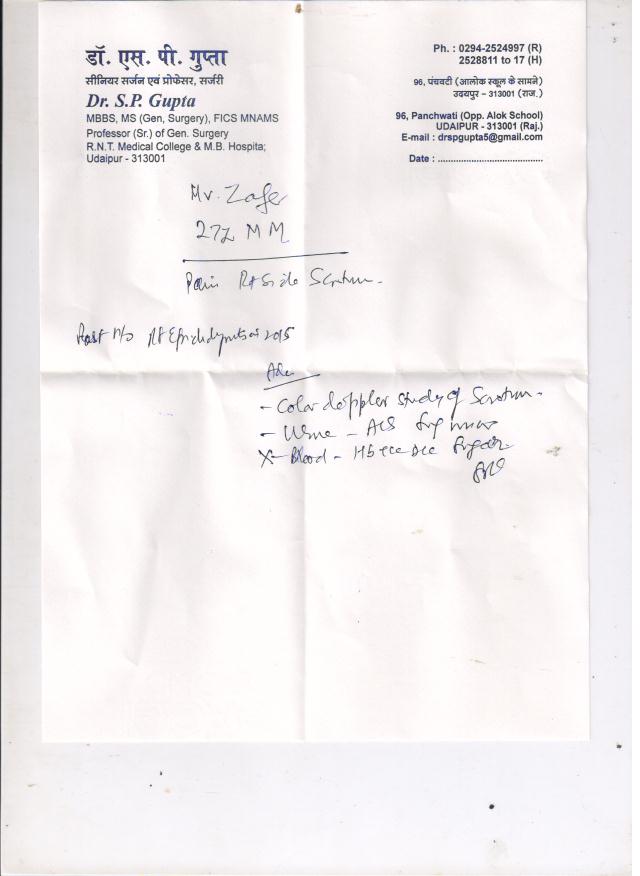 डॉ. एस. पी. गुप्ता
सीनियर सर्जन एवं प्रोफेसर, सर्जरी
Dr. S.P. Gupta
MBBS, MS (Gen, Surgery), FICS MNAMS
Professor (Sr.) of Gen. Surgery
R.N.T. Medical College & M.B. Hospita;
Udaipur - 313001
Ph. : 0294-2524997 (R)
2528811 to 17 (H)
96, पंचवटी (आलोक स्कूल के सामने)
उदयपुर – 313001 (राज.)
96, Panchwati (Opp. Alok School)
UDAIPUR - 313001 (Raj.)
E-mail : drspgupta5@gmail.com
Date : ........................................
Mr. Zafer
27y M M
Pain Rt Side Scrotum.
Past H/o Rt Epididymitis 2015
Adv
- Color doppler study of Scrotum.
- Urine -
X- Blood - Hb TLC DLC